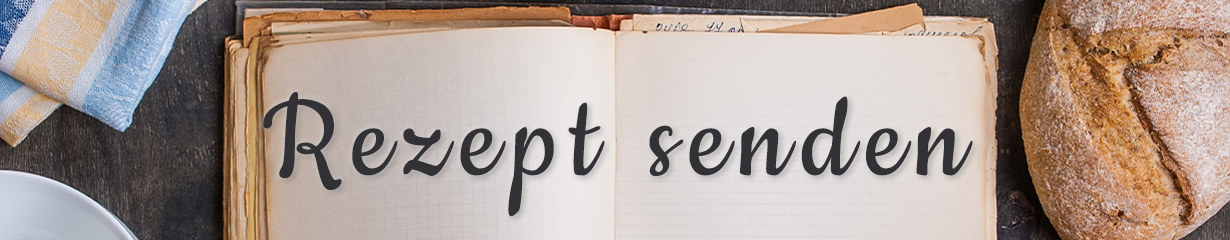 Rezept senden